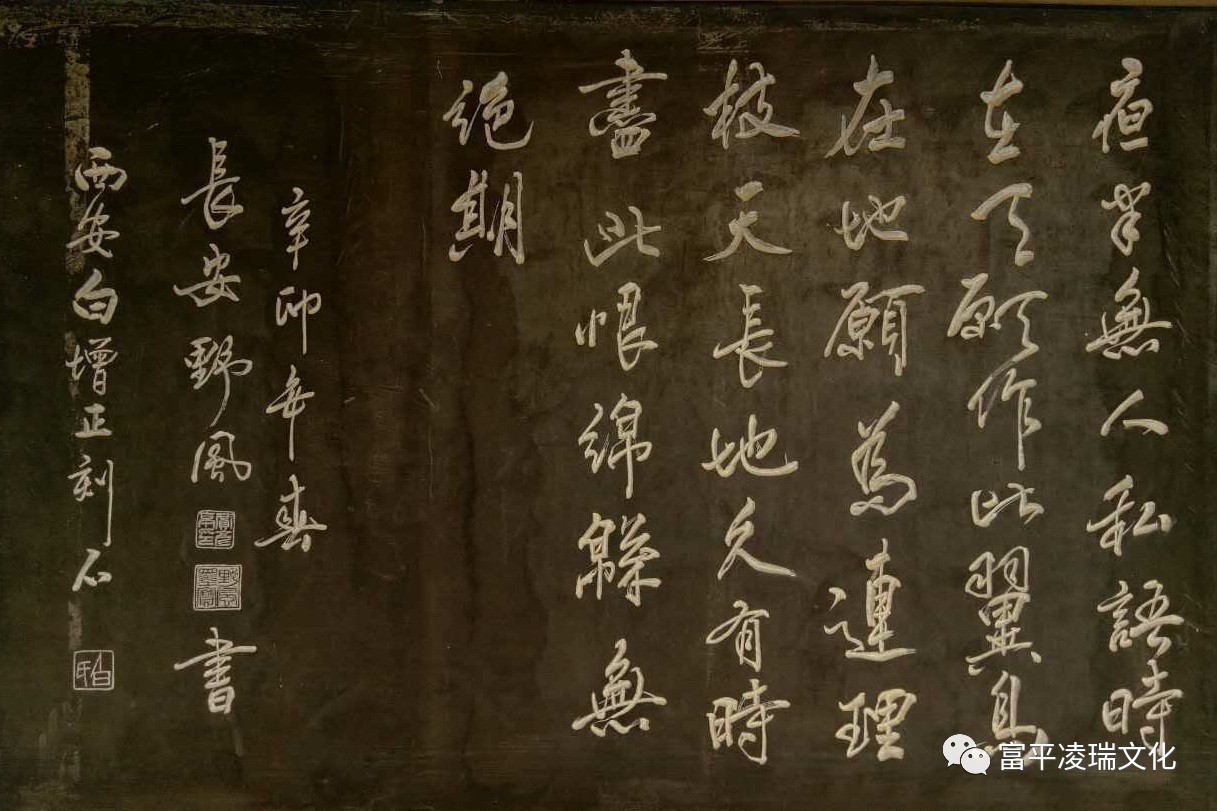 夜半無人私語時
在天願作比翼鳥
在地願為連理
枝天長地久有時
盡此恨綿綿無
絕期
辛卯年春
長安野風書
西安白增正刻石
富平凌瑞文化